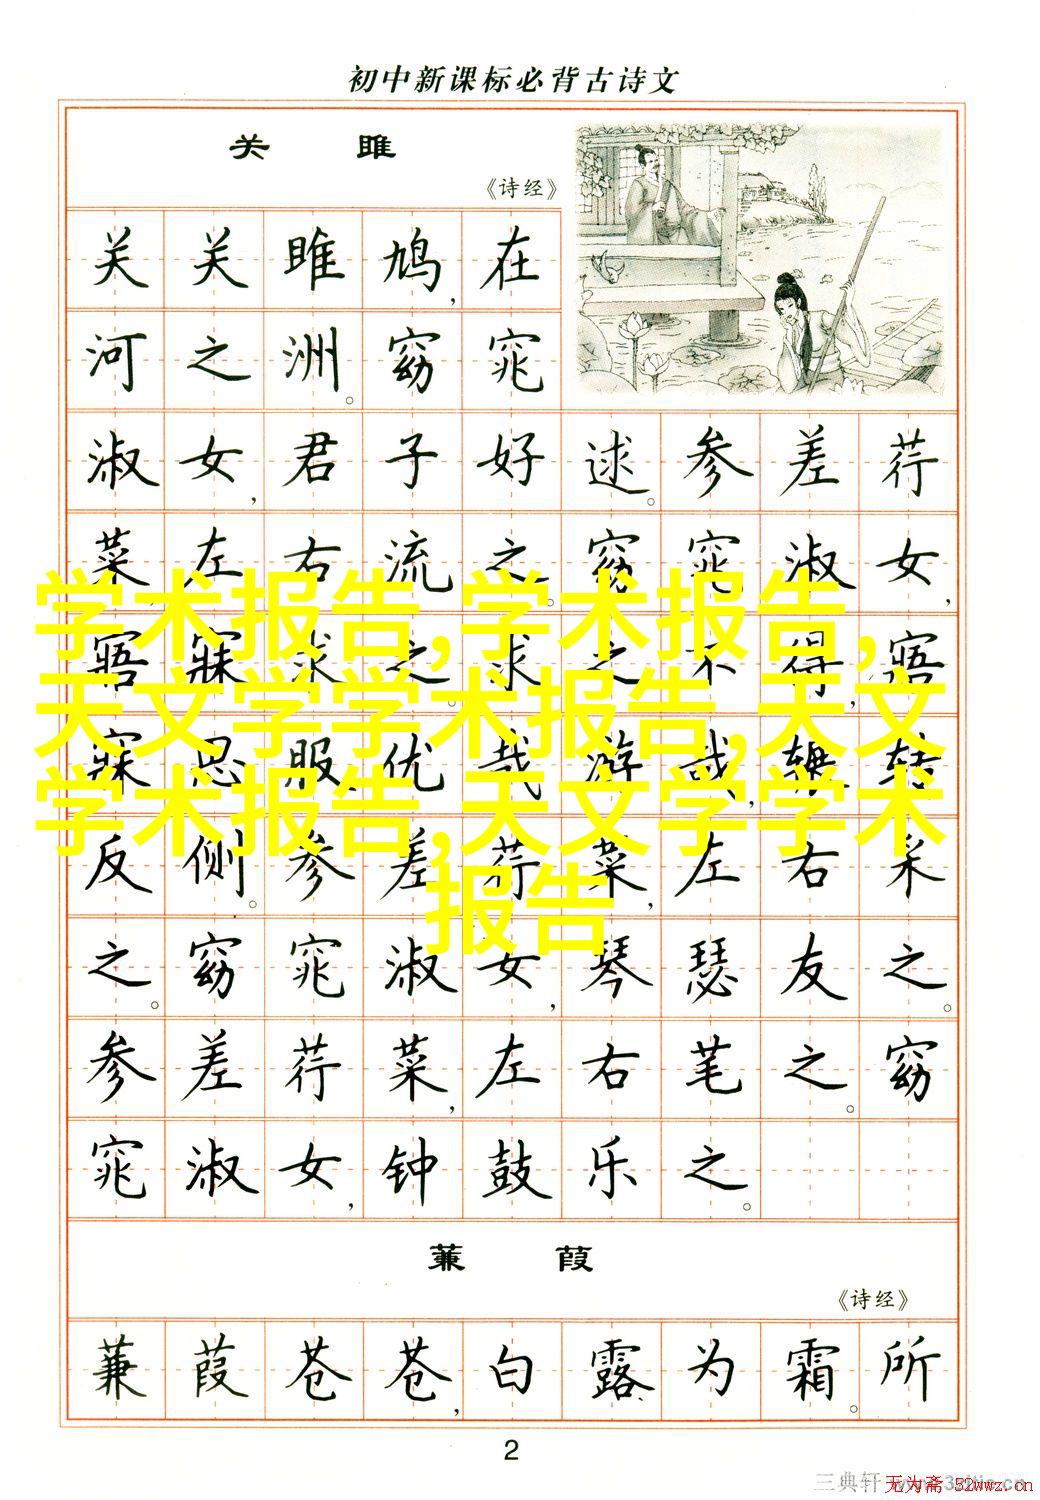 初中新课标必背古诗文
关 雎
《诗经》
关关雎鸠，在
河之洲。窈窕
淑女，君子好逑。参差荇
菜，左右流之。窈窕淑女，
寤寐求之。求之不得，寤
寐思服，优哉游哉，辗转
反侧。参差荇菜，左右采
之。窈窕淑女，琴瑟友之。
参差荇菜，左右芼之。窈
窕淑女，钟鼓乐之。
学术报告,学术报告,
天文学学术报告,天文
学术报告,天文学学术
报告
蒹 葭
《诗经》
蒹葭苍苍，白露为霜。所
2
三典轩
无为斋 52wwz.cn